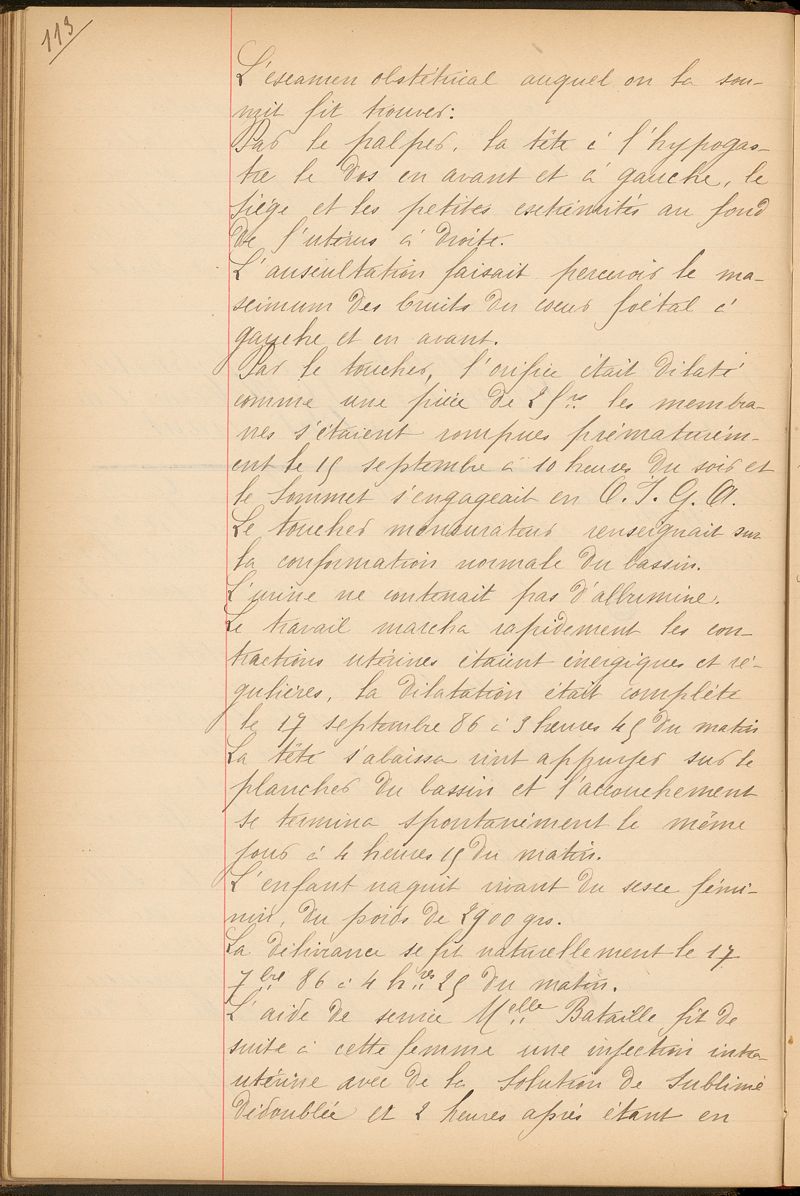 113
L'examen obstétrical auquel on la sou-
mit fit trouver:
Par le palper, la tête à l'hypogas-
tre le dos en avant et à gauche, le
siège et les petites extrémités au fond
de l'utérus à droite.
L'auscultation faisait percevoir le ma-
ximum des bruits du coeur foetal à
gauche et en avant.
Par le toucher, l'orifice était dilaté
comme une pièce de 2 frs les membra-
nes s'étaient rompues prématurém-
ent le 15 septembre à 10 heures du soir et
le sommet s'engageait en O. I. G. A.
Le toucher mensurateur renseignait sur
la conformation normale du bassin.
L'urine ne contenait pas d'albumine.
Le travail marcha rapidement les con-
tractions utérines étaient énergiques et ré-
gulières, la dilatation était complète
le 17 septembre 86 à 3 heures 45 du matin
La tête s'abaissa vint appuyer sur le
plancher du bassin et l'accouchement
se termina spontanément le même
jour à 4 heures 15 du matin.
L'enfant naquit vivant du sexe fémi-
nin, du poids de 2900 grs.
La délivrance se fit naturellement le 17
7bre 86 à 4 hres 25 du matin.
L'aide de service Melle Bataille fit de
suite à cette femme une injection intra-
utérine avec de la solution de sublimé
dédoublée et 2 heures après étant en